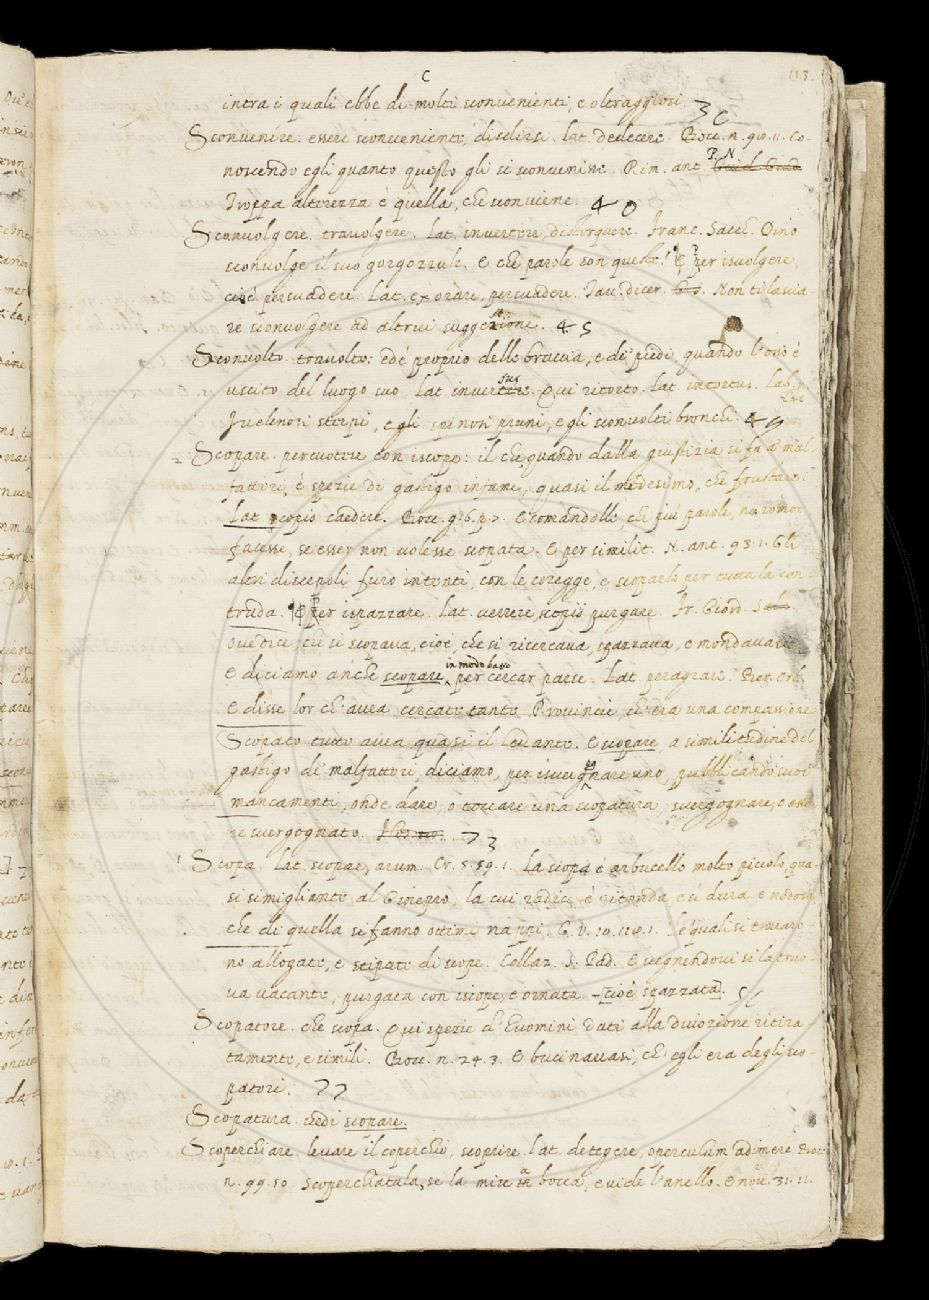 C
113
intra i quali ebbe di molti sconvenienti, e oltraggiosi.
Sconvenire. essere sconveniente, disdirsi. lat. dedecere. Bocc. n. 98. 11. Co-
noscendo egli quanto questo gli si sconvenisse. Rim. ant. P. N.
Troppa alterezza è quella, che sconviene. 40
Sconvolgere. travolgere. lat. invertere, distorquere. Franc. Sacch. Dino
sconvolge il suo gorgozzule. e che parole son queste? E per isvolgere,
cioè persuadere. lat. exorare, persuadere. Tav. dicer. Non ti lascia-
re sconvolgere ad altrui suggestione. 45
Sconvolto. travolto: ed è proprio delle braccia, e de' piedi, quando l'osso è
uscito del luogo suo. lat. inversus. Qui ritorto. lat. intortus. Lab. n.
246
Ivelenosi sterpi, e gli spinosi pruni, e gli sconvolti bronchi. 49
Scopare. percuotere con iscope: il che, quando dalla giustizia si fa a' mal-
fattori, è spezie di gastigo infame, quasi il medesimo, che frustare.
lat. scopis caedere. Bocc. g. 6. p. 7. E comandolle, che più parole, ne romor
facesse, se esser non volesse scopata. E per similit. N. ant. 93. 1. Gli
altri discepoli furo intenti, con le coregge, e scoparlo per tutta la con-
truda. E per ispazzare. lat. verrere, scopis purgare. Fr. Giord.
ove dice, che si scopava, cioè, che si ricercava, spazzava, e mondava
E diciamo anche scopare in modo basso per cercar paese. lat. peragrare.
E disse lor ch'avea cercate tante Provincie, ch'era una compassione
Scopato tutto avea quasi il Levante. E scopare, a similitudine del
gastigo de' malfattori, diciamo, per isvergognare uno, pubblicando i suoi
mancamenti, onde dare, o toccare una scopatura, svergognare, o esse-
re svergognato. 73
Scopa. lat. scopae, arum. Cr. 5. 59. 1. La scopa è arbucello molto piccolo, qua-
si simigliante al Ginepro, la cui radice è ritonda e sì dura e nodosa,
che di quella si fanno ottimi nappi. G. V. 10. 118. 1. Le quali si trovaro-
no allogate, e stipate di scope. Collaz. S. Pad. E vegnendovi si la truo-
va vacante, purgata con iscope, e ornata - cioè spazzata.
Scopatore. che scopa. Qui spezie d'huomini dati alla divozione ritira-
tamente, e simili. Bocc. n. 24. 3. E bucinavasi, ch'egli era degli sco-
patori. 77
Scopatura. vedi scopare.
Scoperchiare. levare il coperchio, scoprire. lat. detegere, operculum adimere. Bocc.
n. 99. 50. Scoperchiatala, se la mise a bocca, e vide l'anello. E nov. 31. 11.